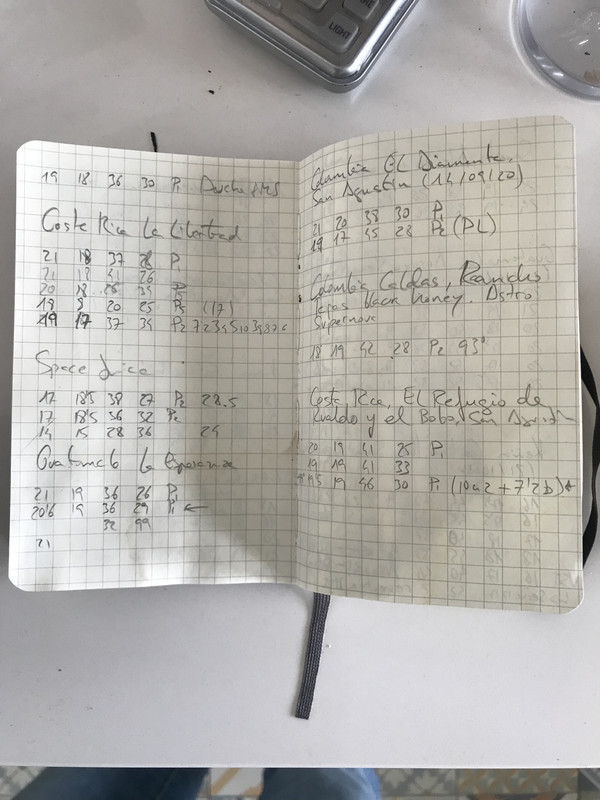 LIGHT
19 18 36 30 P1
Costa Rica La Libertad
21 18 37 26 P1
21 18 41 26
20 18 35 P
19 9 20 25 (17)
19 17 37 35 P2
Space Jice
17 18'5 38 27 P2 28.5
17 18'5 36 32 P2
14 15 28 36 24
Guatemala la Esperanza
21 19 36 26 P1
20'6 19 36 29 P1 ←
32 99
21
Colombia El Diamante,
San Agustin (14/09/20)
21 20 38 30 P1
19 17 45 28 P2 (PL)
Colombia Caldas, Rancho
lepas black honey. Astro
Supernova
18 19 42 28 P2 93°
Costa Rica, El Refugio de
y el Bobo, San
20 19 41 25 P1
19 19 41 33
19 46 30 P1 (10a2 + 7'2b) ←